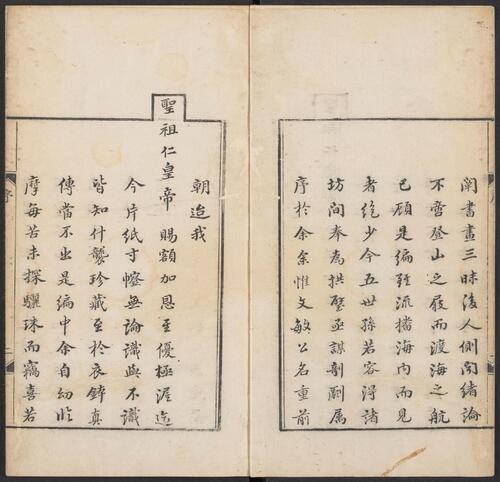 闡書畫三昧後人側聞緒論
不啻登山之屐而渡海之航
已顧是編雖流播海內而見
者絶少今五世孫若容得諸
坊間奉為拱璧亟謀剞劂属
序於余余惟文敏公名重前
朝迨我
聖祖仁皇帝賜額加恩至優極渥迄
今片紙寸幨無論識與不識
皆知什襲珍藏至於衣鉢真
傳當不出是編中余自幼臨
摩每苦未探驪珠而竊喜若
序